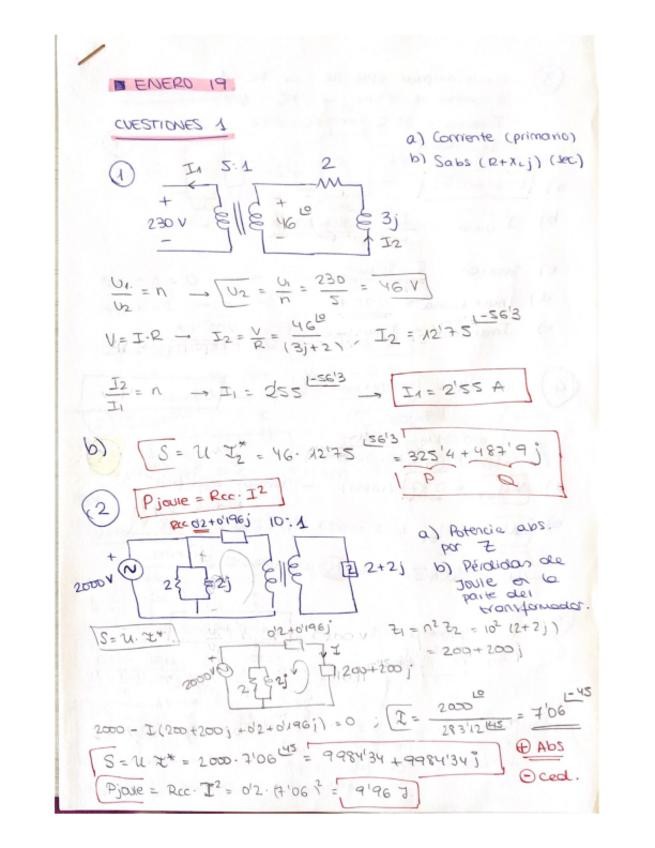 ■ ENERO 19
CUESTIONES 1
a) Corriente (primario)
b) Sabs (R+XLj) (sec)
① I1 5:1 2
+ 230 V -
+ 46 ∠0
3j
I2
U1/U2 = n → U2 = U1/n = 230/5 = 46 V
V = I·R → I2 = V/R = 46∠0/(3j+2), I2 = 12'75 ∠-56'3
I2/I1 = n → I1 = 2'55 ∠-56'3 → I1 = 2'55 A
b) S = U·I2* = 46 · 12'75 ∠56'3 = 325'4 + 487'9j
P Q
② Pjoule = Rcc · I²
Rcc 0'2+0'196j 10:1
+ 2000 V 2 2j Z 2+2j
a) Potencia abs.
por Z
b) Pérdidas de
Joule en la
parte del
transformador.
S = U·I*
Z1 = n² Z2 = 10² (2+2j)
= 200+200j
0'2+0'196j
+ 2000V 2 2j I 200+200j
2000 - I(200+200j+0'2+0'196j) = 0 ; I = 2000∠0/283'12∠45 = 7'06 ∠-45
S = U·I* = 2000 · 7'06 ∠45 = 9984'34 + 9984'34j
⊕ Abs
⊖ ced.
Pjoule = Rcc · I² = 0'2 · (7'06)² = 9'96 J